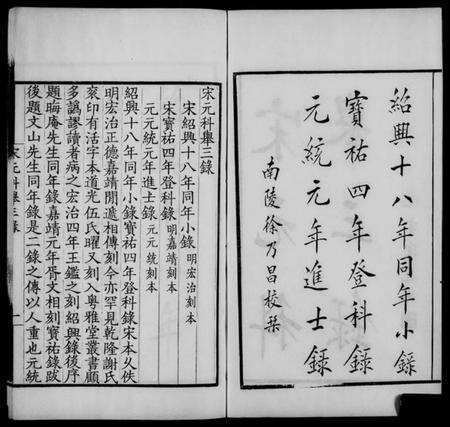 紹興十八年同年小錄
寶祐四年登科錄
元統元年進士錄
南陵徐乃昌校栞
宋元科舉三錄
宋紹興十八年同年小錄 明宏治刻本
宋寶祐四年登科錄 明嘉靖刻本
元元統元年進士錄 元元統刻本
紹興十八年同年小錄寶祐四年登科錄宋本久佚
明宏治正德嘉靖間遞相傳刻今亦罕見乾隆謝氏
裒印有活字本道光伍氏曜又刻入粵雅堂叢書顧
多譌謬讀者病之宏治四年王鑑之刻紹興錄後序
題晦庵先生同年錄嘉靖元年胥文相刻寶祐錄跋
後題文山先生同年錄是二錄之傳以人重也元統
宋元科舉三錄
一